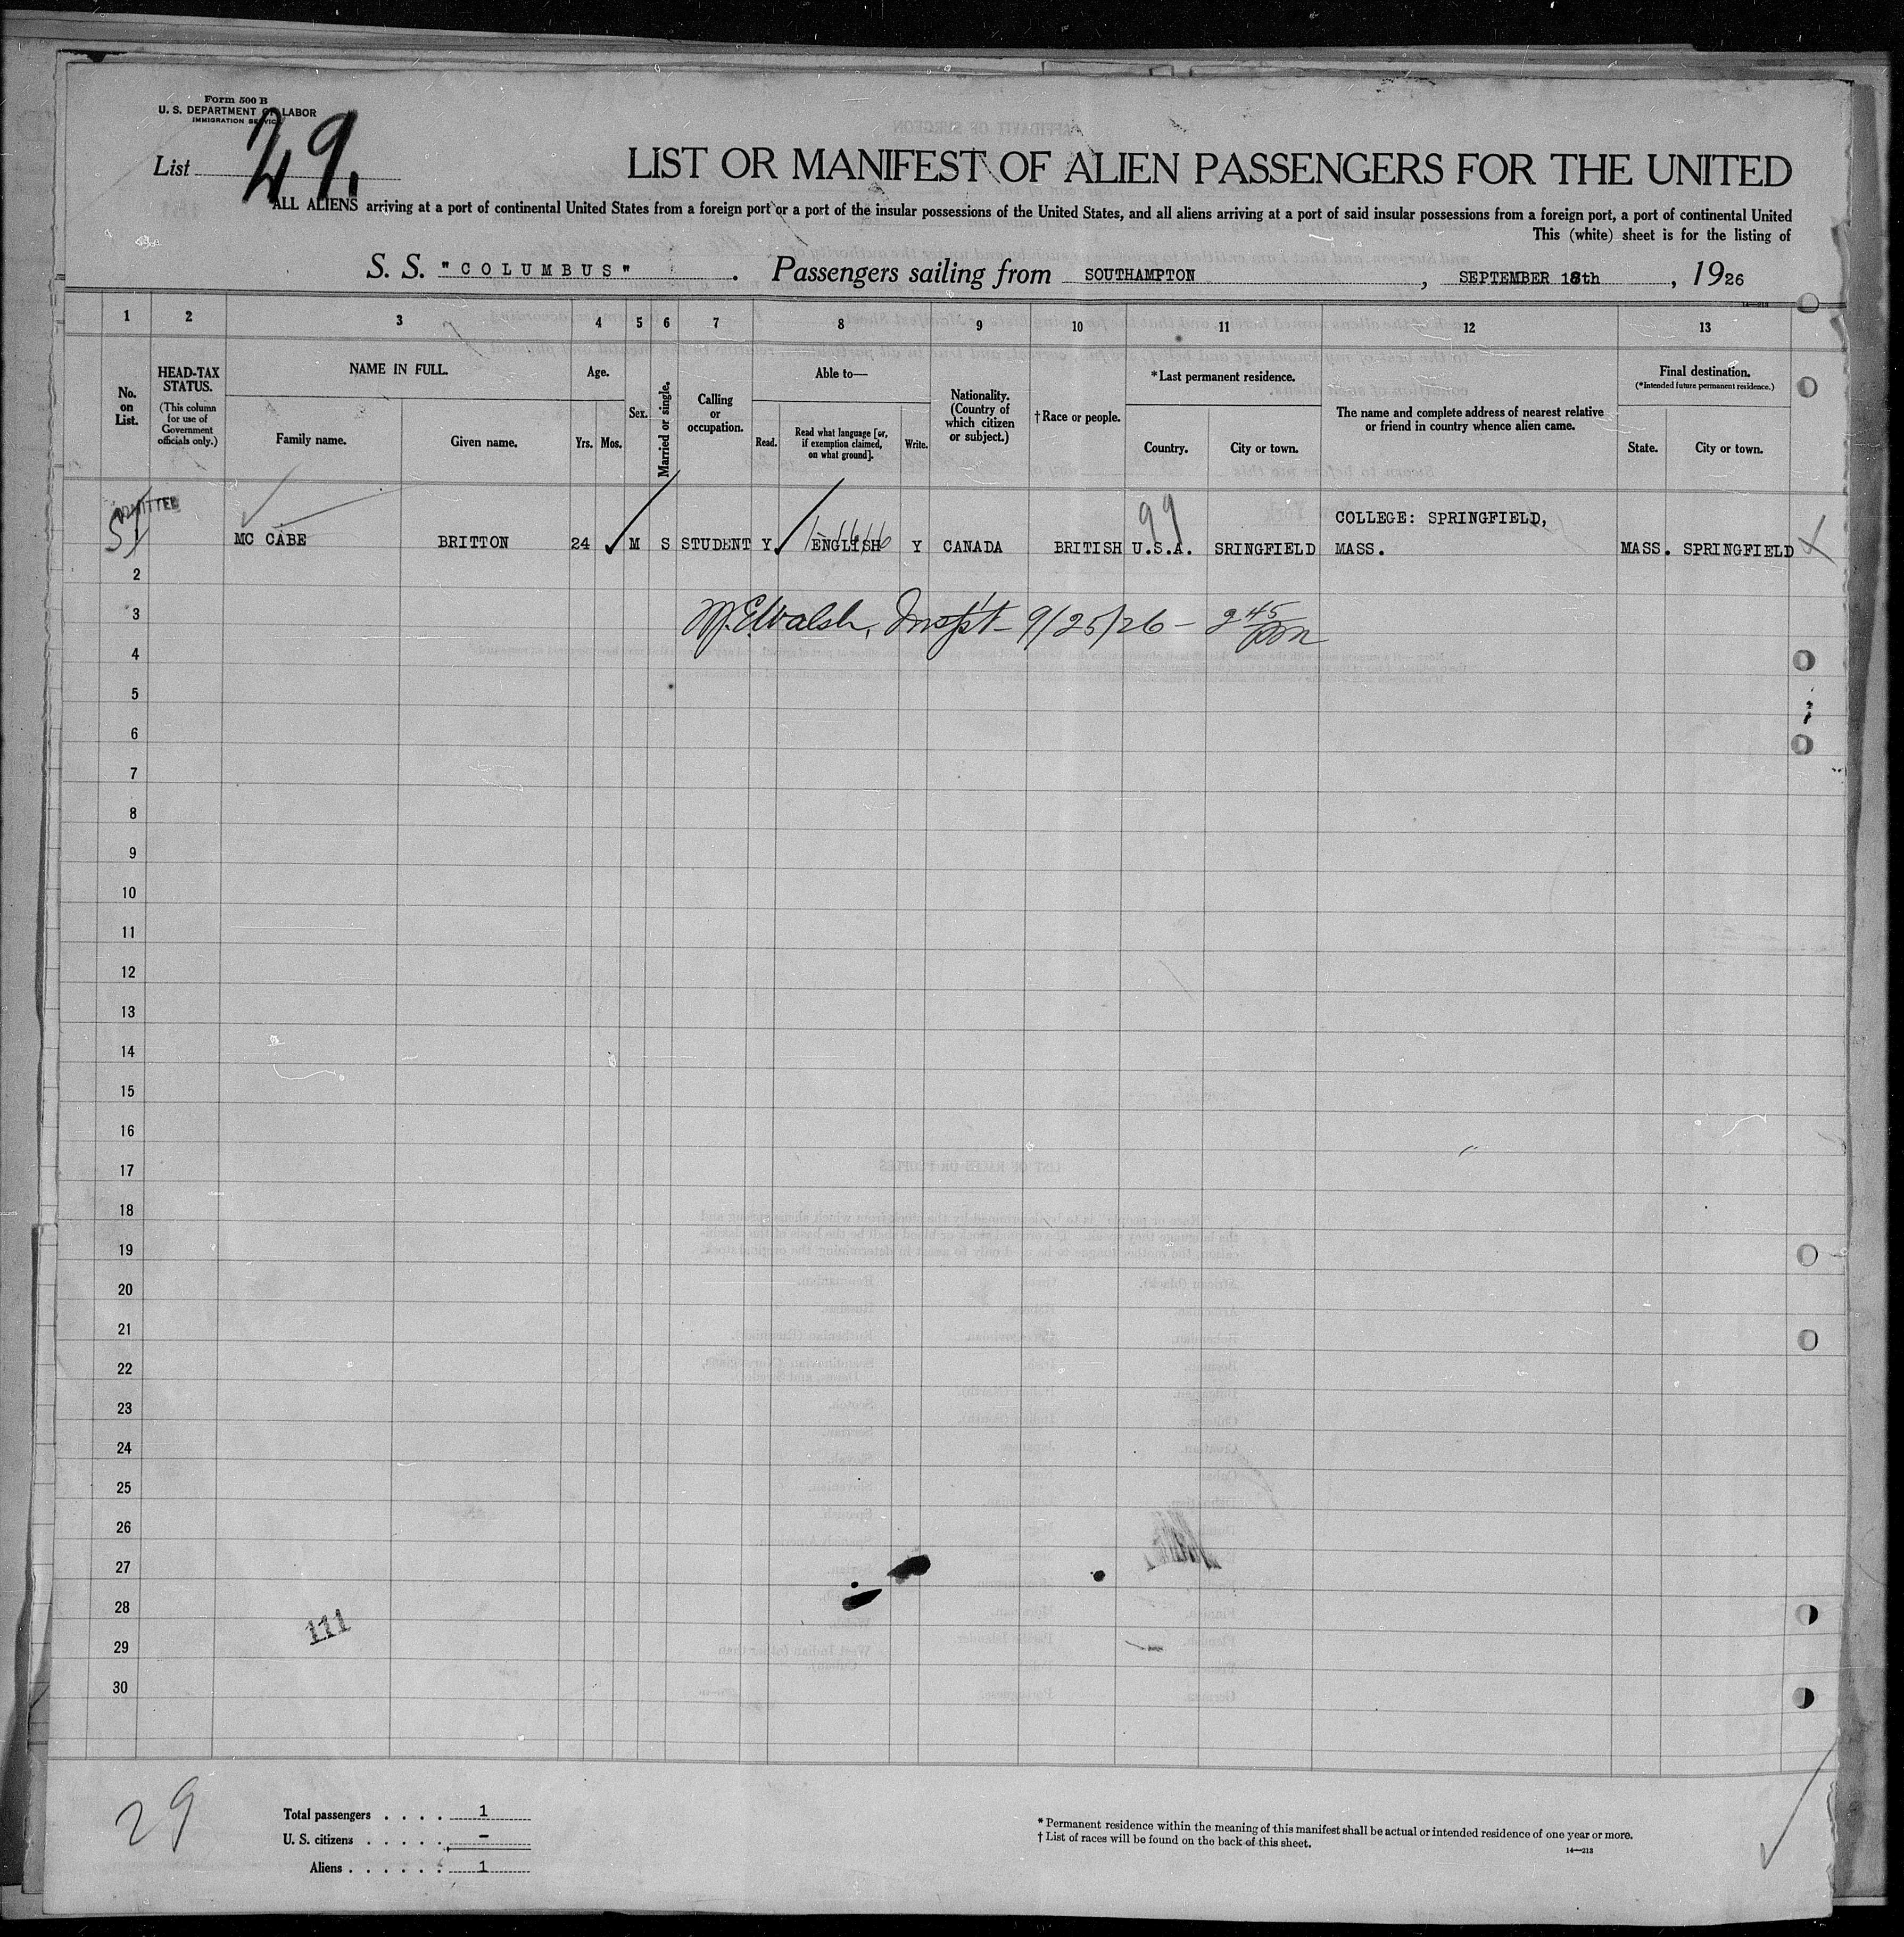 Form 500 B
U. S. DEPARTMENT OF LABOR
IMMIGRATION SERVICE
List 29.
LIST OR MANIFEST OF ALIEN PASSENGERS FOR THE UNITED
ALL ALIENS arriving at a port of continental United States from a foreign port or a port of the insular possessions of the United States, and all aliens arriving at a port of said insular possessions from a foreign port, a port of continental United
This (white) sheet is for the listing of
S. S. "COLUMBUS" . Passengers sailing from SOUTHAMPTON , SEPTEMBER 18th , 1926
14—213
1 2 3 4 5 6 7 8 9 10 11 12 13
No. on List.
HEAD-TAX STATUS.
(This column for use of Government officials only.)
NAME IN FULL.
Family name.
Given name.
Age.
Yrs. Mos.
Sex.
Married or single.
Calling or occupation.
Able to—
Read.
Read what language [or, if exemption claimed, on what ground].
Write.
Nationality. (Country of which citizen or subject.)
†Race or people.
*Last permanent residence.
Country.
City or town.
The name and complete address of nearest relative or friend in country whence alien came.
Final destination.
(*Intended future permanent residence.)
State.
City or town.
ADMITTED
99
COLLEGE: SPRINGFIELD,
1 MC CABE BRITTON 24 M S STUDENT Y ENGLISH Y CANADA BRITISH U.S.A. SRINGFIELD MASS. MASS. SPRINGFIELD
2
3 M.E. Walsh, Insp't - 9/25/26 - 2 45 pm
4
5
6
7
8
9
10
11
12
13
14
15
16
17
18
19
20
21
22
23
24
25
26
27
28
111
29
30
29
Total passengers . . . . 1
U. S. citizens . . . . . –
Aliens . . . . . . 1
* Permanent residence within the meaning of this manifest shall be actual or intended residence of one year or more.
† List of races will be found on the back of this sheet.
14—213